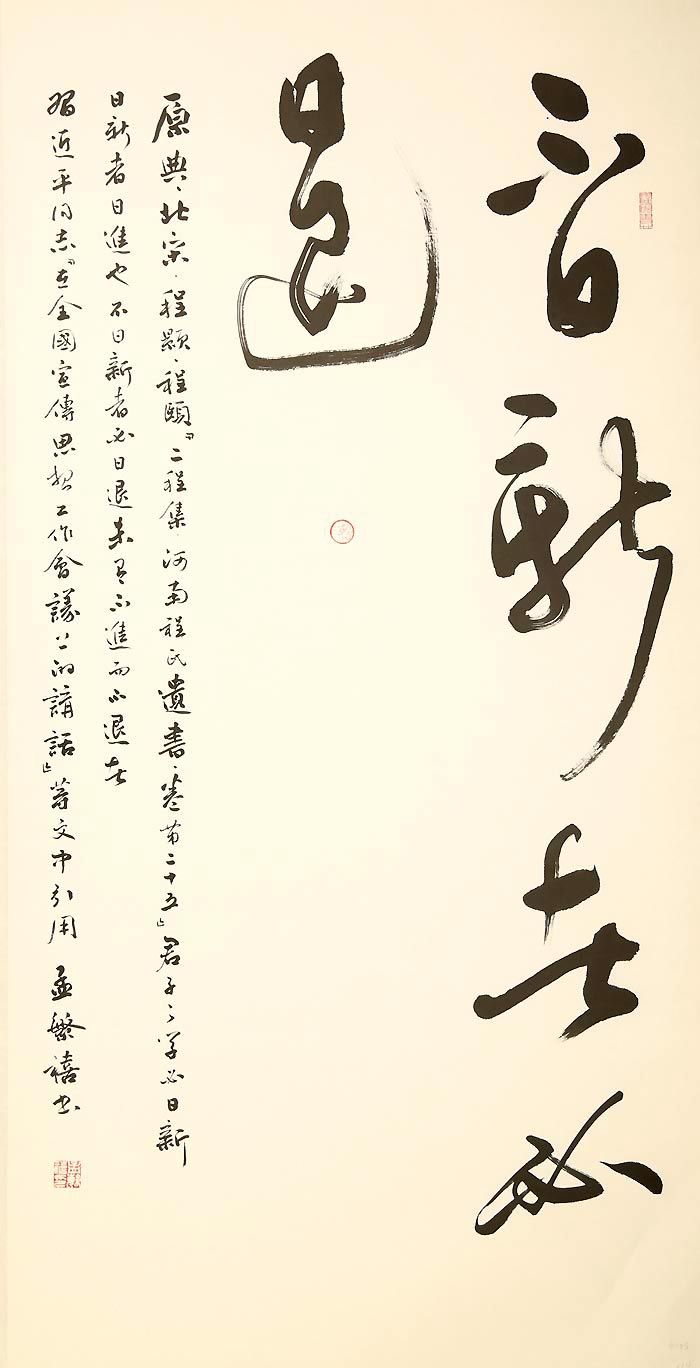 不日新者必
日退
原典、北宋·程颢、程頤『二程集·河南程氏遺書、卷第二十五』君子之学必日新
日新者日進也不日新者必日退未有不進而不退者
習近平同志『在全國宣傳思想工作會議上的講話』等文中引用 孟繁禧书